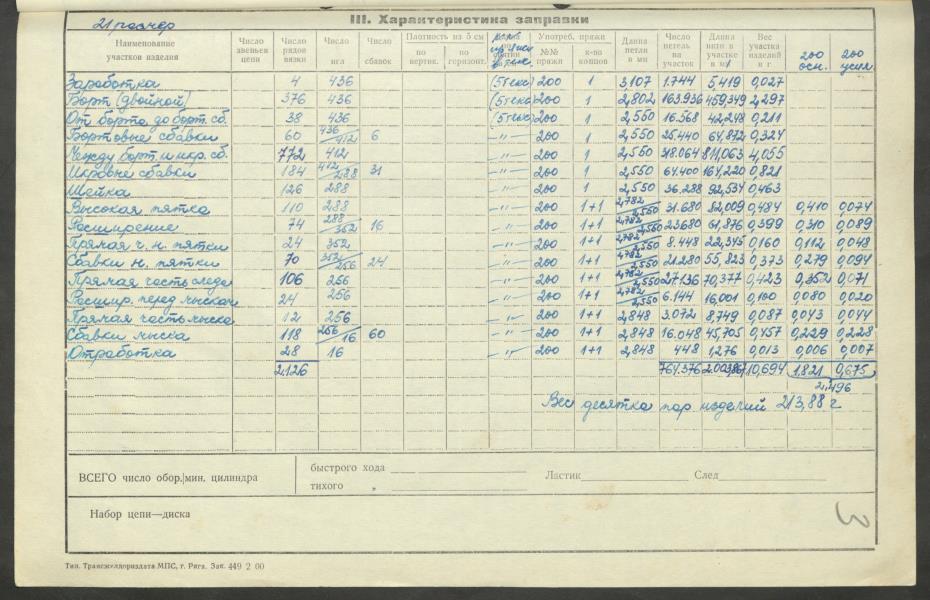 III. Характеристика заправки
21 размер
Наименование участков изделия | Число звеньев цепи | Число рядов вязки | Число игл | Число сбавок | Плотность из 5 см по вертик. | по горизонт. | Употреб. пряжи №№ пряжи | к-во концов | Длина петли в мм | Число петель на участок | Длина нити в участке в м | Вес участка изделия в г | 200 осн. | 200 усил.
Заработка 4 436 (5 текс) 200 1 3,107 1.744 5,419 0,027
Борт (двойной) 376 436 (5 текс) 200 1 2,802 163.936 459,349 2,297
От борта до борт. сб. 38 436 (5 текс) 200 1 2,550 16.568 42,248 0,211
Бортовые сбавки 60 436/412 6 –"– 200 1 2,550 25.440 64,872 0,324
Между борт. и икр. сб. 772 412 –"– 200 1 2,550 318.064 811,063 4,055
Икровые сбавки 184 412/288 31 –"– 200 1 2,550 64.400 164,220 0,821
Шейка 126 288 –"– 200 1 2,550 36.288 92,534 0,463
Высокая пятка 110 288 –"– 200 1+1 2,782/2,550 31.680 82,009 0,484 0,410 0,074
Расширение 74 288/352 16 –"– 200 1+1 2,782/2,550 23680 61,876 0,399 0,310 0,089
Прямая ч. н. пятки 24 352 –"– 200 1+1 2,782/2,550 8.448 22,345 0,160 0,112 0,048
Сбавки н. пятки 70 352/256 24 –"– 200 1+1 2,782/2,550 21.280 55,823 0,373 0,279 0,094
Прямая часть следа 106 256 –"– 200 1+1 2,782/2,550 27.136 70,377 0,423 0,352 0,071
Расшир. перед мыском 24 256 –"– 200 1+1 2,782/2,550 6.144 16,001 0,100 0,080 0,020
Прямая часть мыска 12 256 –"– 200 1+1 2,848 3.072 8,749 0,087 0,043 0,044
Сбавки мыска 118 256/16 60 –"– 200 1+1 2,848 16.048 45,705 0,457 0,229 0,228
Отработка 28 16 –"– 200 1+1 2,848 448 1,276 0,013 0,006 0,007
2.126 764.376 10,694 1.821 0,675
2,496
Вес десятка пар изделий 213,88 г
ВСЕГО число обор./мин. цилиндра
быстрого хода
тихого "
Ластик
След
Набор цепи—диска
3
Тип. Трансжелдориздата МПС, г. Рига. Зак. 449 2 00